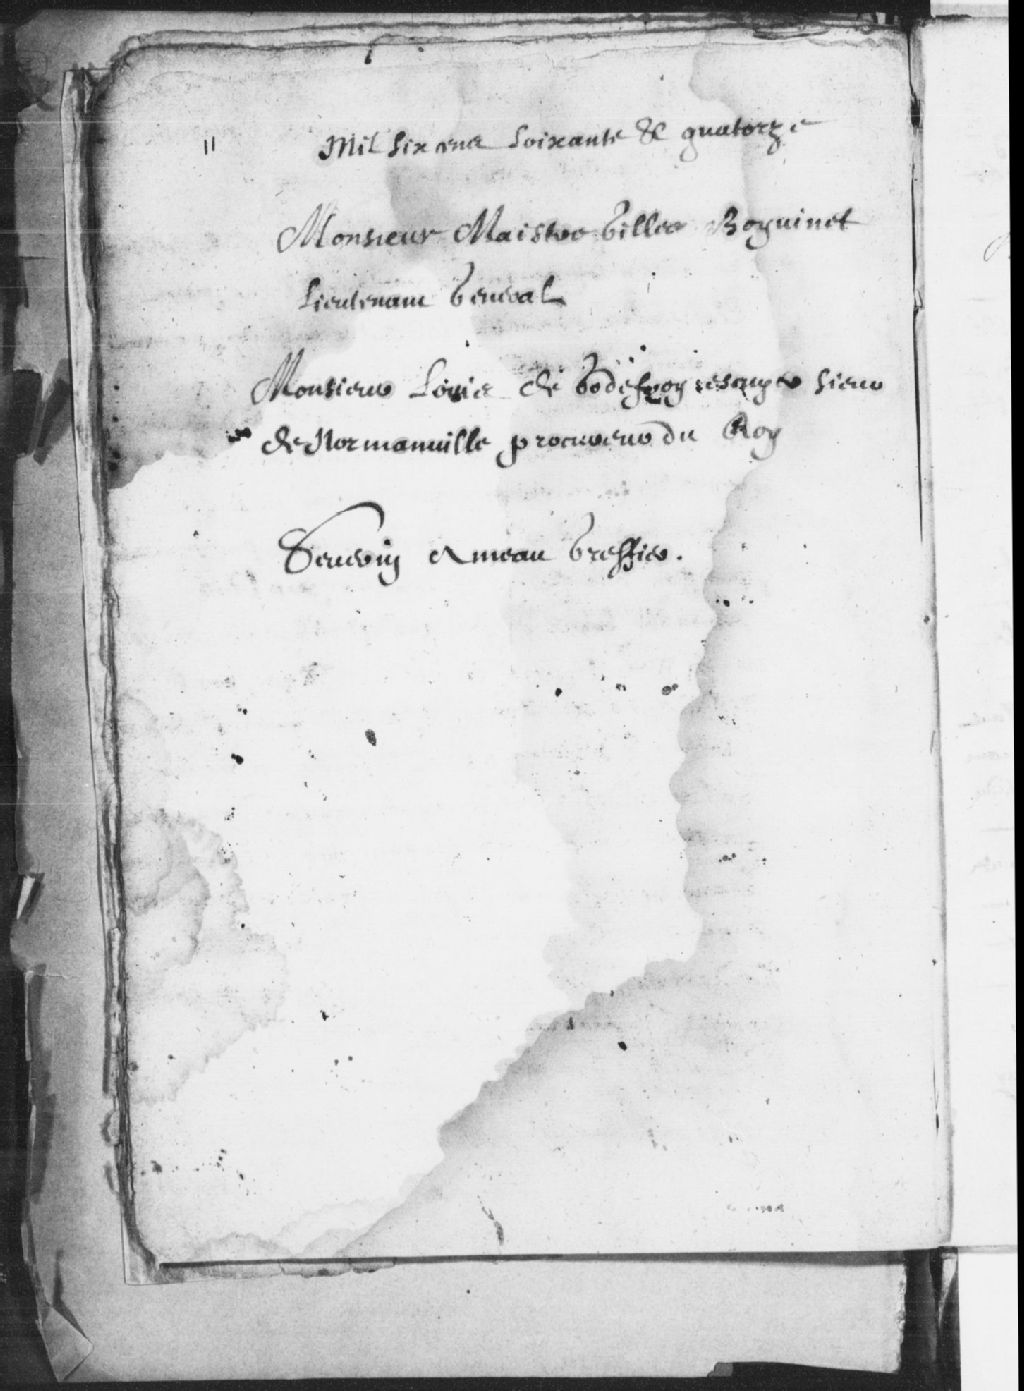 Mil six cens soixante & quatorze
Monsieur Maistre Gilles Boyvinet
Lieutenant General
Monsieur Louis de Godefroy escuyer sieur
de Normanville procureur du Roy
Severin Ameau Greffier.